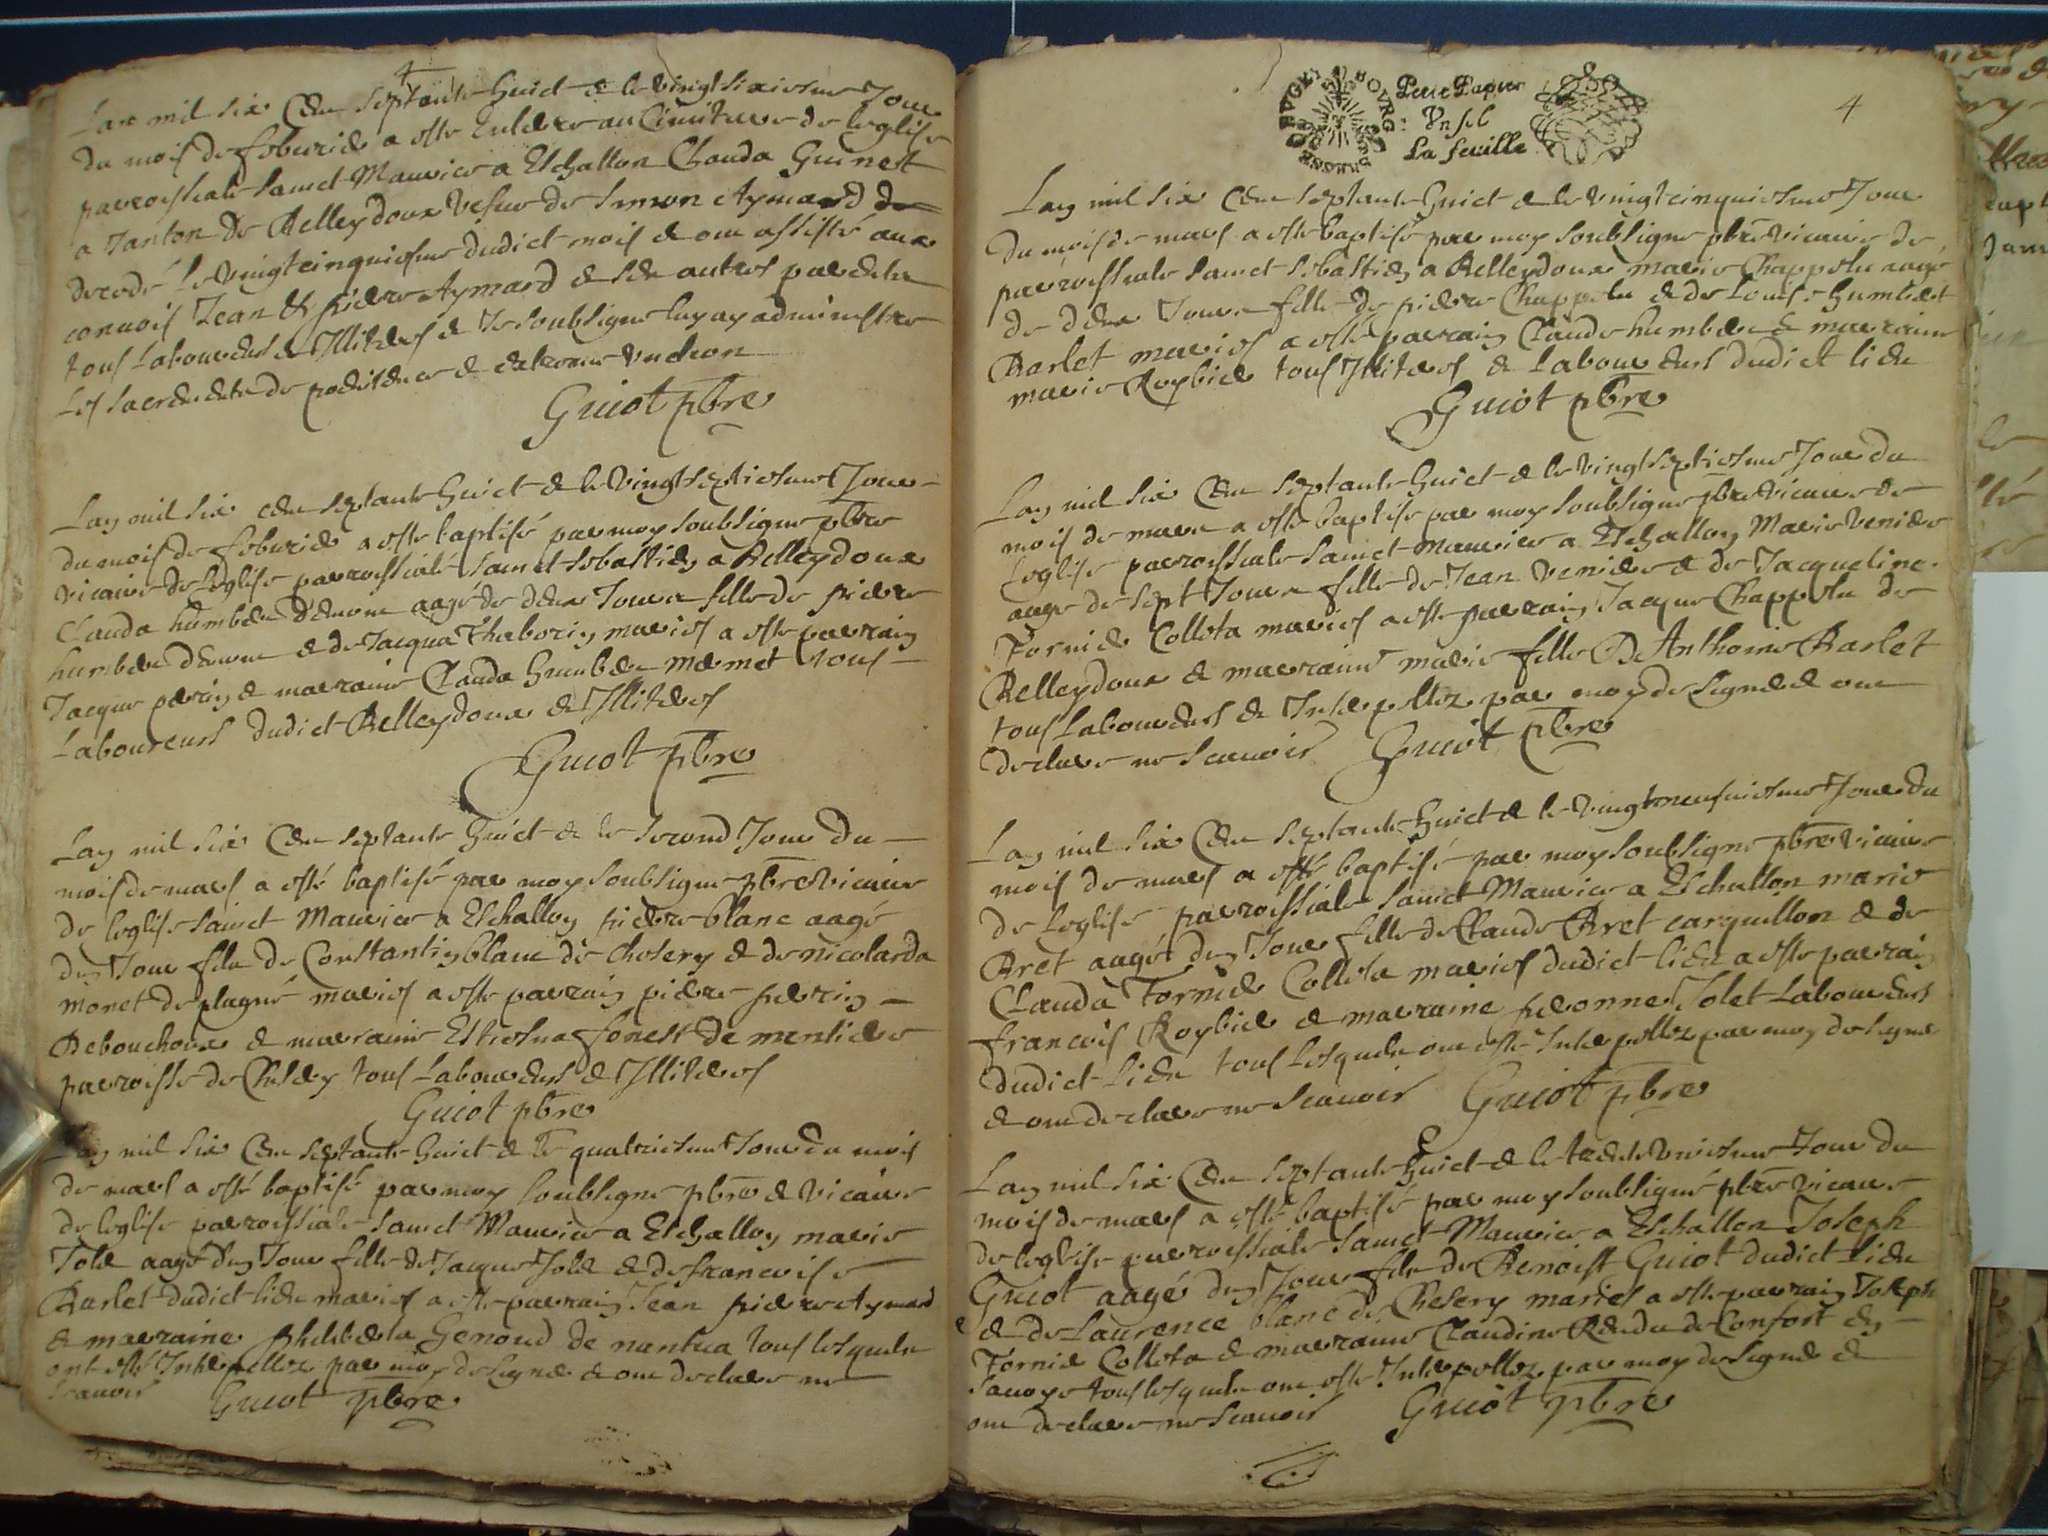 4
Lan mil six Cens septante huict & le vingt sixiesme Jour
du mois de febvrier a este enterre au Cimitiere de leglise
parrossiale Sainct Maurice a Eschallon Clauda Guinest
a Tanton de Belleydoux vesve de Simon Aymard
decede le vingt cinquiesme dudict mois & ont assisté aux
convois Jean & pierre Aymard & autres parents
tous Laboureurs Illiteres & Je soubsigne luy ay administre
Les Sacrements de penitence & extreme unction
Guiot pbre
Lan mil six cens septante huict & le vingt septiesme Jour
du mois de febvrier a este baptisé par moy soubsigne pbre
vicaire de leglise parrossiale sainct sebastien a Belleydoux
Clauda humbert aagé de deux Jours fille de pierre
humbert & de Jacqua mariés a este parrain
Jacque perrin & marraine Clauda humbert tous
Laboureurs dudict Belleydoux & Illiteres
Guiot pbre
Lan mil six Cens septante huict & le second Jour du
mois de mars a esté baptisé par moy soubsigne pbre vicaire
de leglise sainct Maurice a Eschallon pierre blanc aagé
dun Jour fils de Constantin blanc de Chesery & de nicolarda
monet de plagne mariés a este parrain piere perrin
Debouchoux & marraine Estiesna fonest de mentieres
parroisse de Chesery tous Laboureurs & Illiteres
Guiot pbre
Lan mil six Cens septante huict & le quatriesme Jour du mois
de mars a esté baptisé par moy soubsigne pbre & vicaire
de leglise parrossiale sainct Maurice a Eschallon marie
Jolet aagé dun Jour fille de Jacque Jolet & de francoise
Barlet dudict lieu mariés a este parrain Jean pierre Aymard
& marraine philiberta Genoud de nantua tous lesquels
ont esté Interpellez par moy de signer & ont declare ne
scavoir Guiot pbre
BOVRG
Petit Papier
Un sol
La feuille
4
Lan mil six Cens septante huict & le vingt cinquiesme Jour
du mois de mars a este baptisé par moy soubsigne pbre vicaire de
parrossiale sainct sebastien a Belleydoux marie Chappelu aagé
de deux Jours fille de pierre Chappelu & de Louise humbert
Barlet mariés a esté parrain Claude humbert & marraine
marie Roybier tous Illiteres & Laboureurs dudict lieu
Guiot pbre
Lan mil six Cens septante huict & le vingt septiesme Jour du
mois de mars a esté baptisé par moy soubsigne pbre vicaire de
Leglise parrossiale sainct Maurice a Eschallon Marie venier
aagé de sept Jours fille de Jean venier & de Jacqueline
Fornier Colleta mariés a este parrain Jacque Chappelu de
Belleydoux & marraine marie fille De Anthoine Barlet
tous Laboureurs & Interpellez par moy de signer & ont
declare ne scavoir Guiot pbre
Lan mil six Cens septante huict & le vingt neufviesme Jour du
mois de mars a esté baptisé par moy soubsigne pbre vicaire
de leglise parrossiale sainct Maurice a Eschallon marie
Bret aagé dun Jour fille de Claude Bret carquillon & de
Clauda Fornier Colleta mariés dudict lieu a este parrain
francois Roybier & marraine peronne Jolet Laboureurs
dudict lieu tous lesquels ont esté Interpellez par moy de signer
& ont declare ne scavoir Guiot pbre
Lan mil six Cens septante huict & le trente uniesme Jour du
mois de mars a esté baptisé par moy soubsigné pbre vicaire
de leglise parrossiale sainct Maurice a Eschallon Joseph
Guiot aagé dun Jour fils de Benoist Guiot dudict lieu
& de Laurence blanc de Chesery mariés a este parrain Joseph
Fornier Colleta & marraine Claudine Rendu de Confort en
savoye tous lesquels ont este Interpellez par moy de signer &
ont declare ne scavoir Guiot pbre